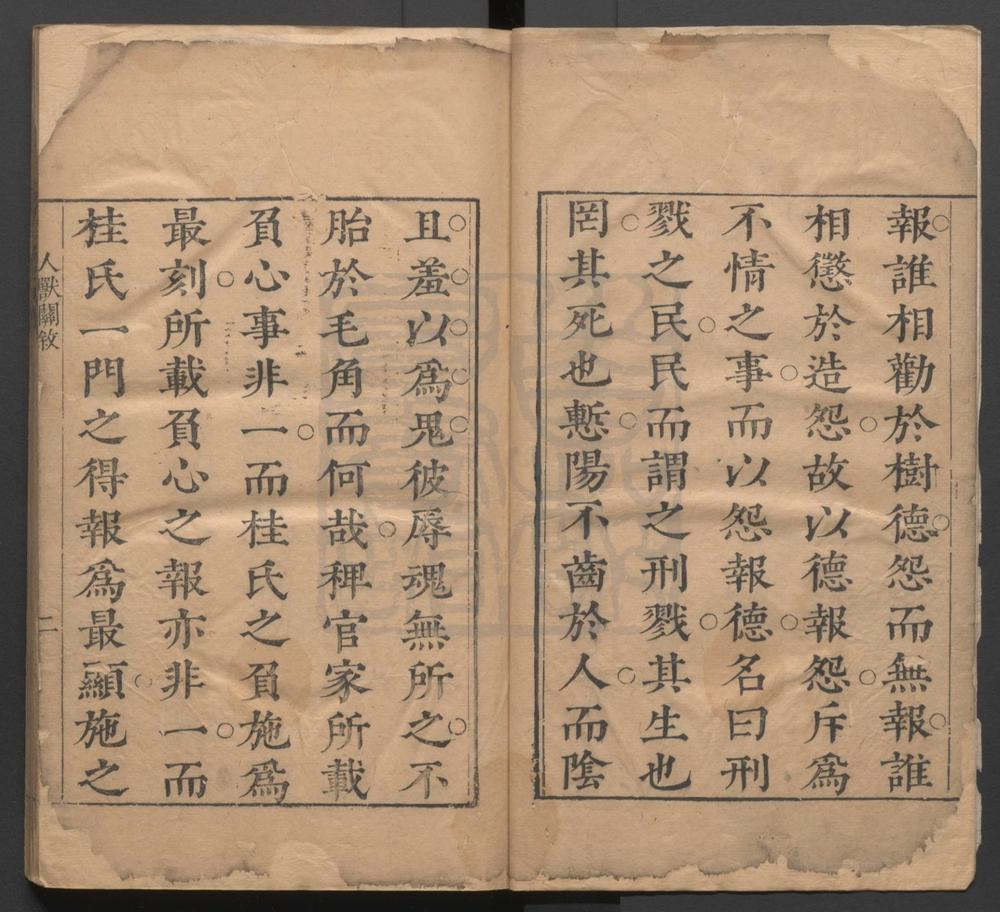 報誰相勸於樹德怨而無報誰
相懲於造怨故以德報怨斥爲
不情之事而以怨報德名曰刑
戮之民民而謂之刑戮其生也
罔其死也慙陽不齒於人而陰
且羞以爲鬼彼辱魂無所之不
胎於毛角而何哉稗官家所載
負心事非一而桂氏之負施爲
最刻所載負心之報亦非一而
桂氏一門之得報爲最顯施之
人獸關敘
二